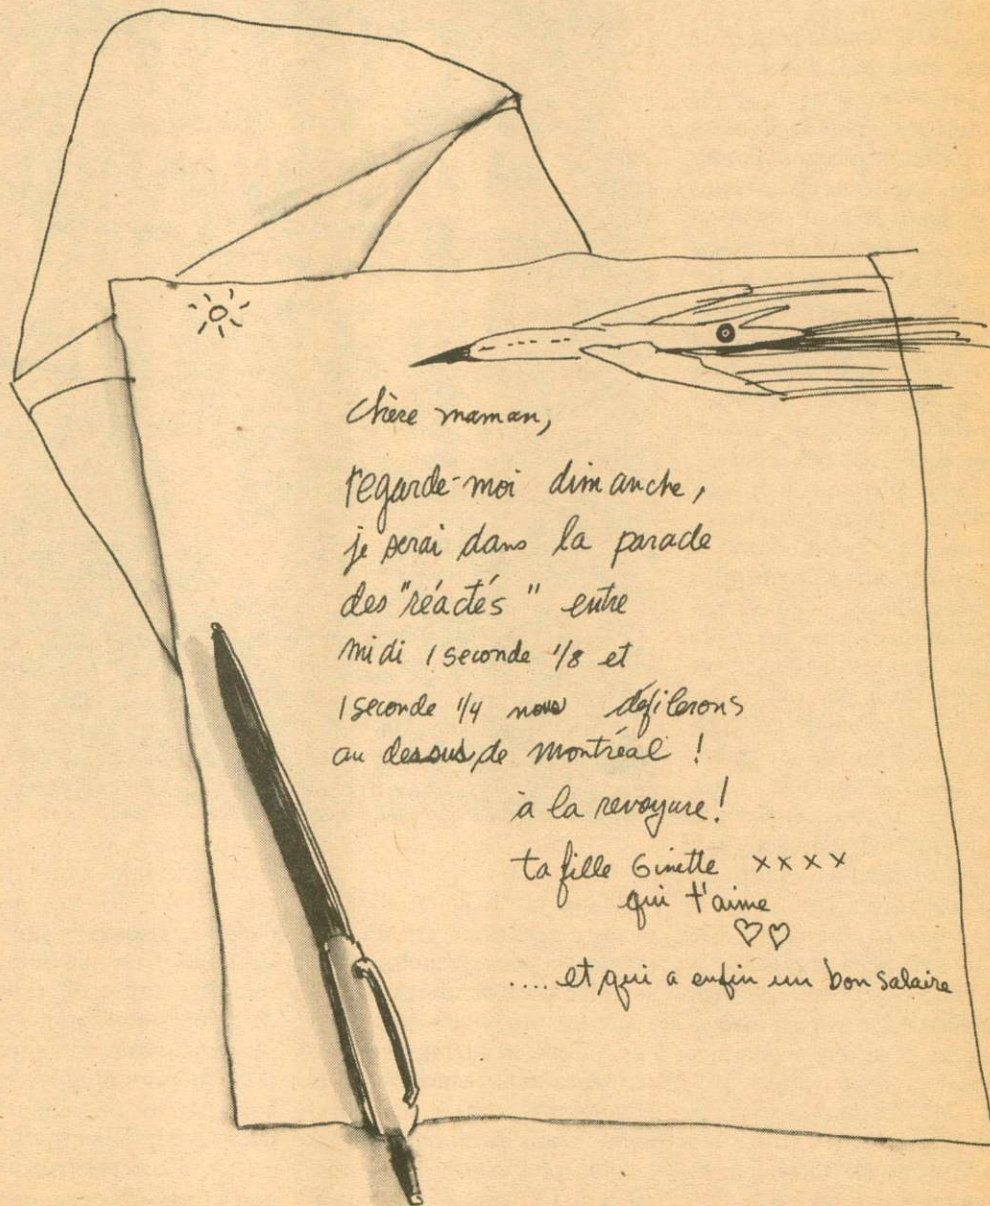 Chère maman,
regarde-moi dimanche,
je serai dans la parade
des "réactés" entre
midi 1 seconde 1/8 et
1 seconde 1/4 nous défilerons
au dessus de Montréal !
à la revoyure !
ta fille Ginette xxxx
qui t'aime
♡♡
.... et qui a enfin un bon salaire